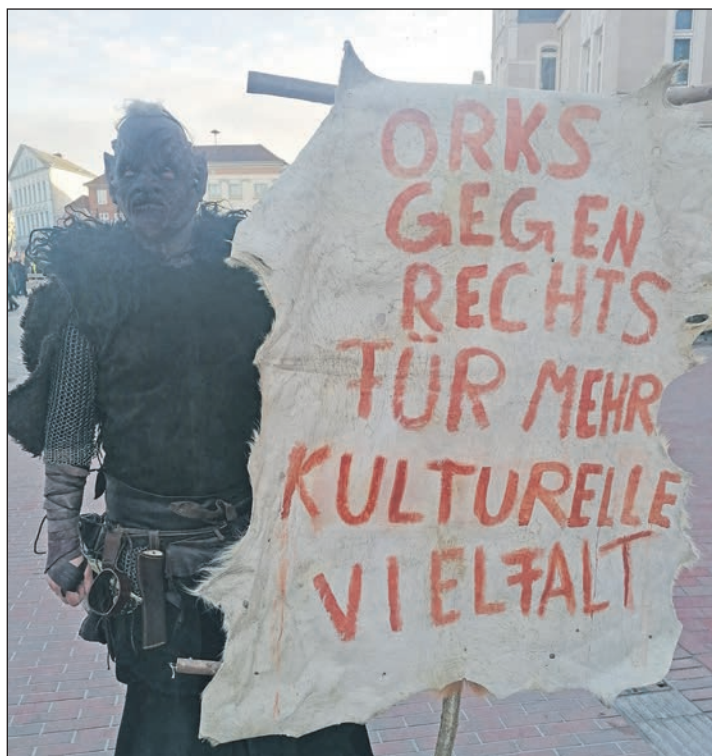 ORKS
GEGEN
RECHTS
FÜR MEHR
KULTURELLE
VIELFALT